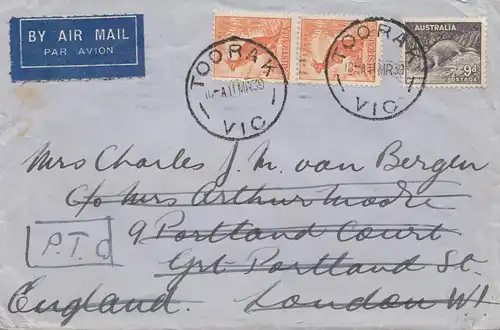 BY AIR MAIL
PAR AVION
TOORAK
A 11 MR 39
VIC
TOORAK
A 11 MR 39
VIC
AUSTRALIA
9d
POSTAGE
Mrs Charles J. M. van Bergen
c/o Mrs Arthur Moore
9 Portland Court
Grt Portland St.
England. London W1
P.T.O